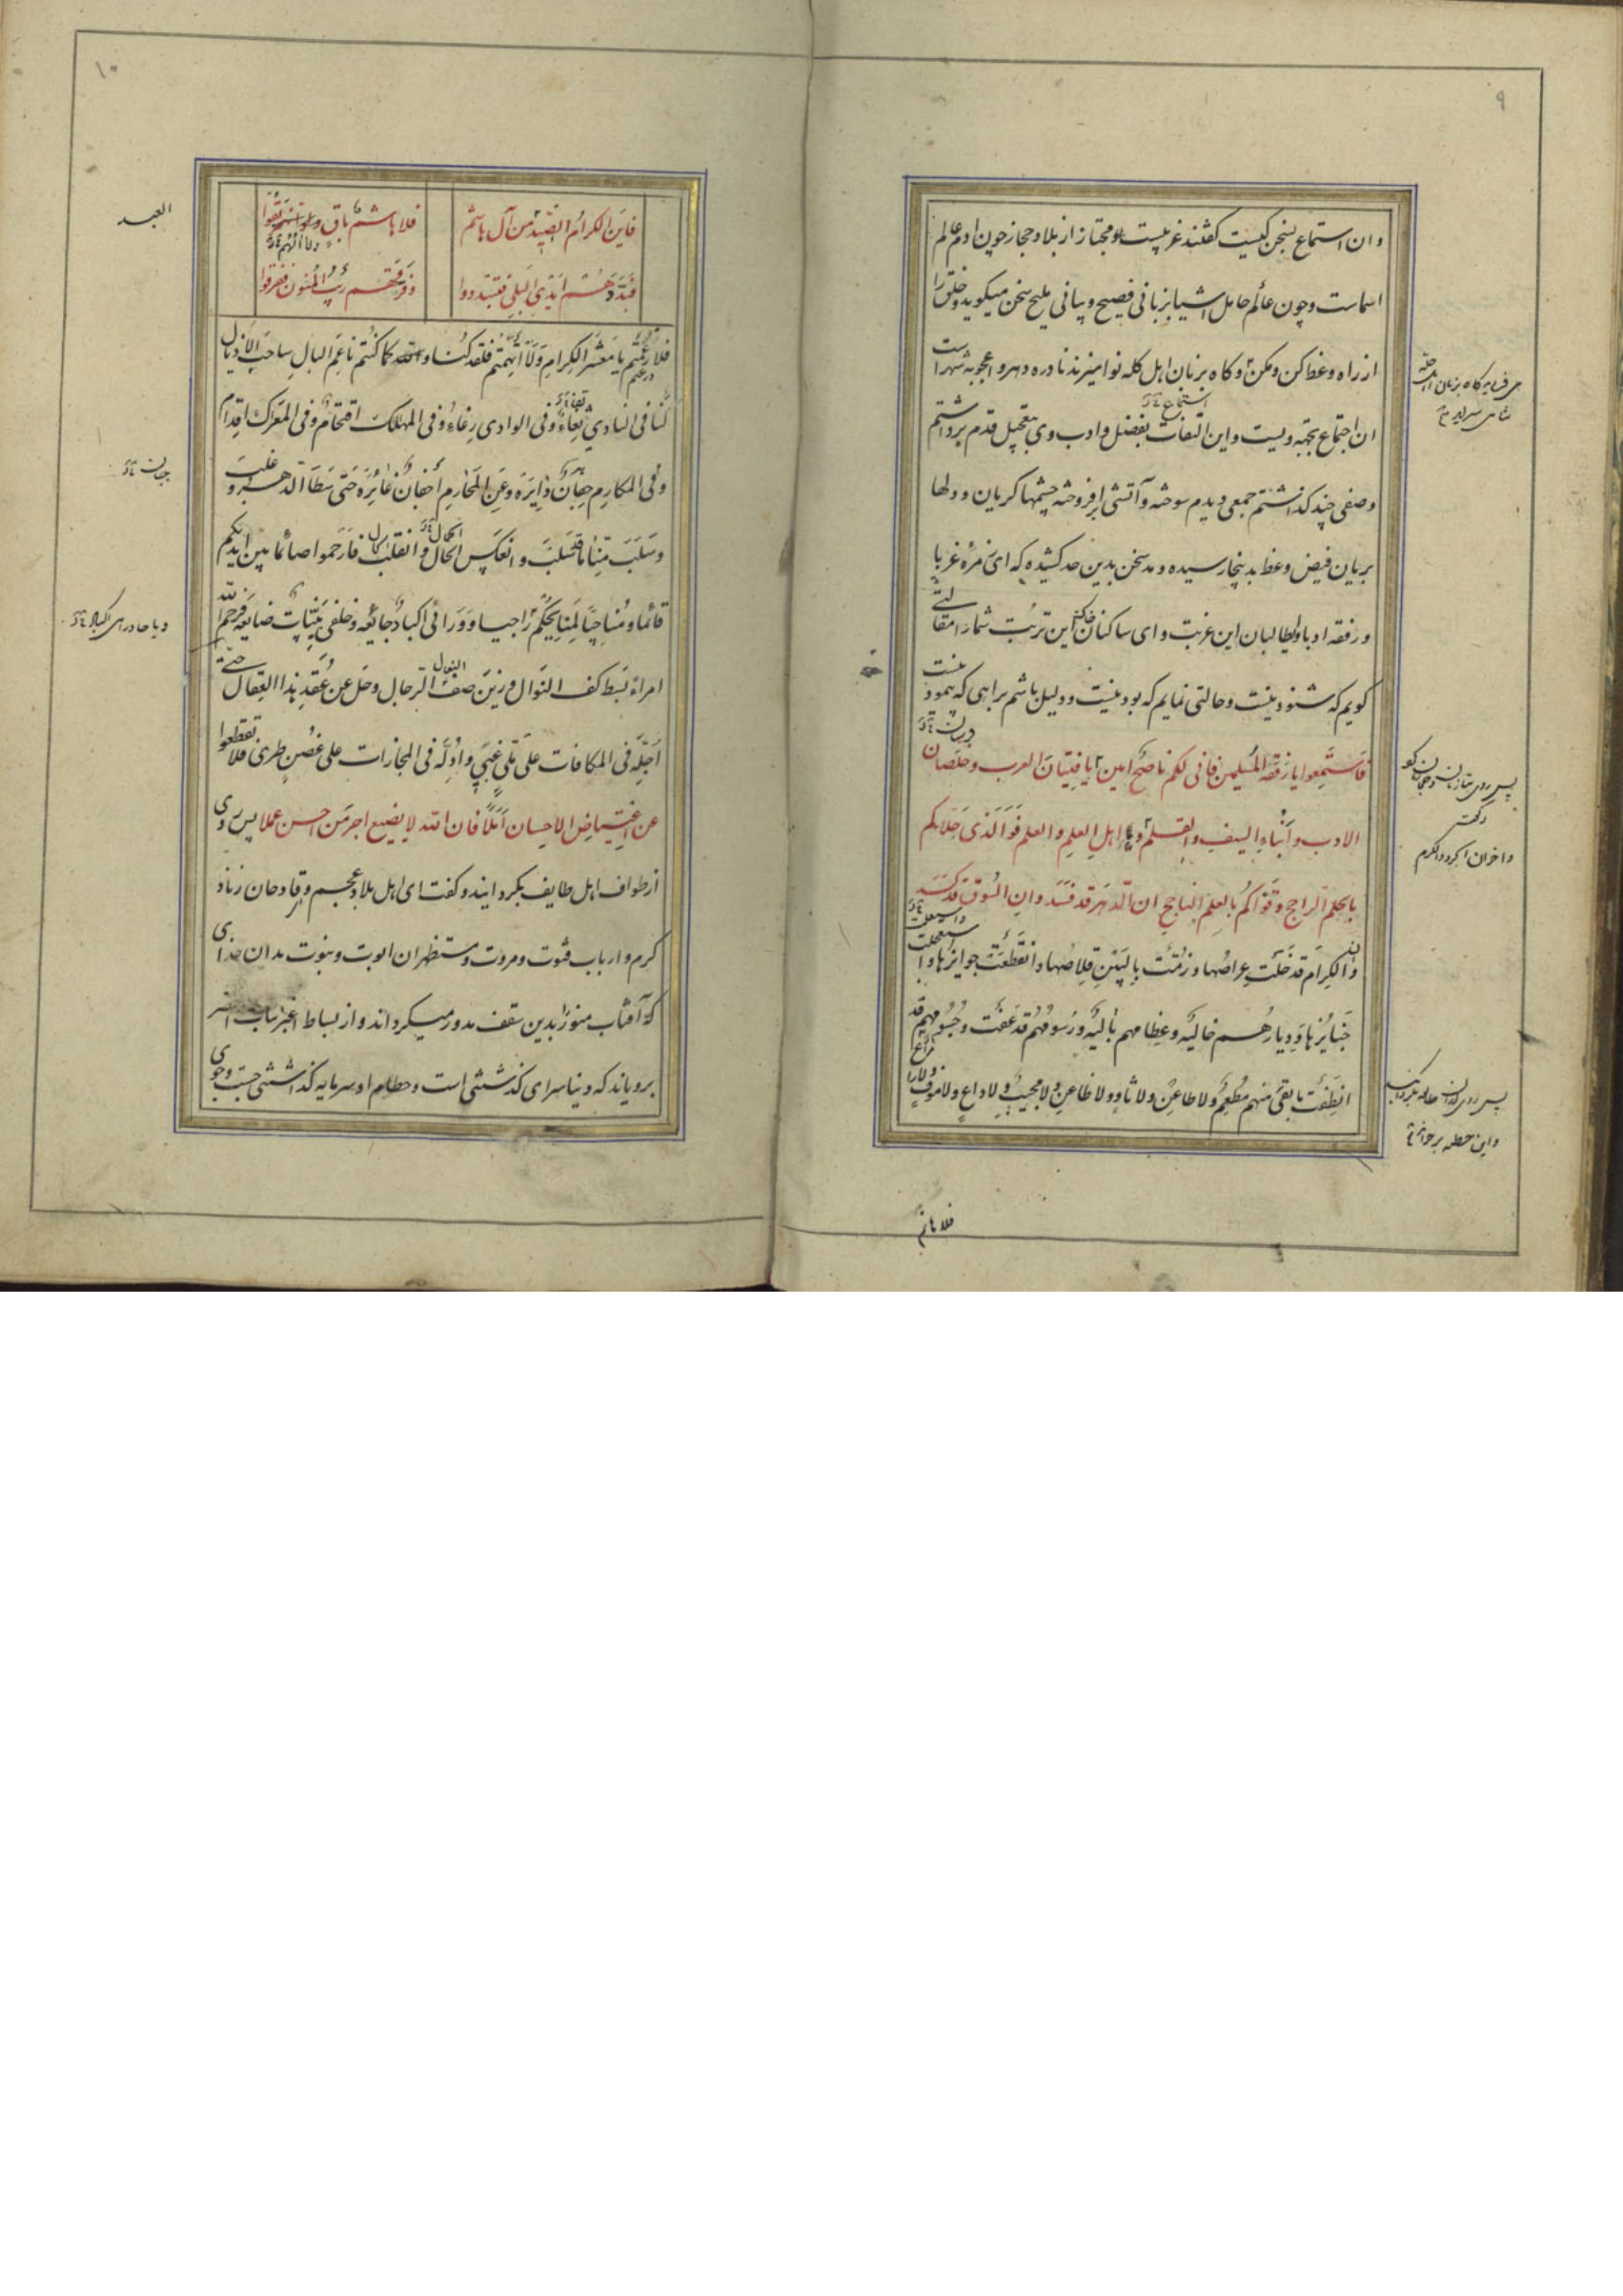 ۹
و ان استماع بسخن کیست گفتند غریبیست و مجتاز از بلاد حجاز چون ادم عالم
اسماست و چون عالم حامل اشیا بزبانی فصیح و بیانی ملیح سخن میگوید و خلق را
از راه وعظ کن و مکن و گاه بزبان اهل کله نوا میزند نادره دهر و اعجوبه شهر است
ان اجتماع بجهة ویست و این التفات بفضل و ادب وی بتعجیل قدم برداشتم
وصفی چند گذاشتم جمعی دیدم سوخته و آتشی افروخته چشمها گریان و دلها
بریان فیض وعظ بدینجا رسیده و مد سخن بدین حد کشیده که ای زمره غربا
و رفقه ادبا و ای طالبان این غربت و ای ساکنان این تربت شما را مقالتی
گویم که شنود نیست و حالتی نمایم که بود نیست و دلیل باشم براهی که پیمود نیست
فاستمعوا یا رفقة المسلمین فانی لکم ناصح امین یا فتیان العرب و خلصان
الادب و ابناء السیف والقلم و یا اهل العلم والعلم فوالذی حلاکم
بالحلم الراجح و قواکم بالعلم الناجح ان الدهر قد فسد و ان السوق قد کسد
وان الکرام قد خلت عراصها و زمت بالبین قلاصها و انقطعت جوایزها و استعجلت
جنایزها و دیارهم خالیة و عظامهم بالیة و رسومهم قد عفت و جسومهم قد
انطفت ما بقی منهم مطعم ولا طاعن ولا ثاو ولا ظاعن ولا مجیب ولا داع ولا موف ولا راع
استماع
پس روی
و اخوان الکرم
پس روی
و این خطبه برخواند
۱۰
فاین الکرام الصید من آل هاشم
فلا هاشم باق
فبددهم ایدی البلی فتبددوا
و فرقهم ریب المنون ففرقوا
فلا رغمتم یا معشر الکرام ولا اتهمتم فلقد کنا والله کما کنتم ناعم البال ساحب الاذیال
لنا فی النادی ثغاء و فی الوادی رغاء و فی المهلک اقتحام و فی المعرک اقدام
و فی المکارم جفان دایرة و عن المحارم اجفان غائرة حتی سطا الدهر و غلب
و سلب منا ما سلب و انعکس الحال و انقلب فارحموا صائما بین ایدیکم
قائما و مناجیا لمنایحکم راجیا و ورائی اکباد جائعة و خلفی بنیات ضایعة فرحم الله
امراء بسط کف النوال و زین صف الرجال و حل عن عقد هذا العقال حتی
اجله فی المکافات علی تلی و ادله فی المجازات علی غصن طری فلا تقطعوا
عن اعتیاض الاحسان املا فان الله لا یضیع اجر من احسن عملا پس روی
از طواف اهل طایف بگردانید و گفت ای اهل بلاد عجم و قادحان زناد
کرم و ارباب فتوت و مروت و مستظهران ابوت و بنوت بدان خدای
که آفتاب منور را بدین سقف مدور میگرداند و از بساط اغبر نبات اخضر
برویاند که دنیا سرای گذشتنی است و حطام او سرمایه گذاشتنی جست و جوی
العبد